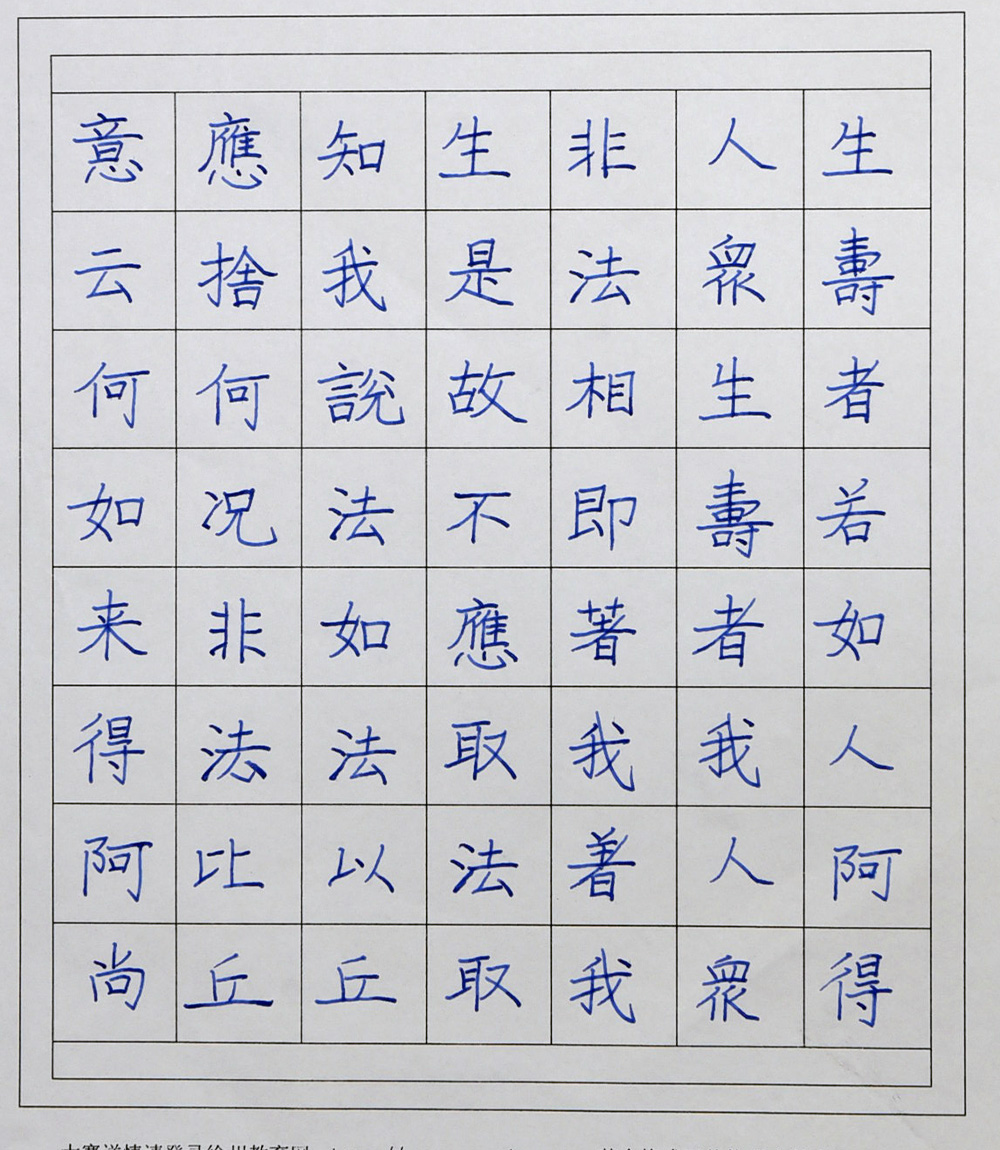 生壽者若如人阿得
人眾生壽者我人眾
非法相即著我著我
生是故不應取法取
知我說法如法以丘
應捨何况非法比丘
意云何如来得阿尚